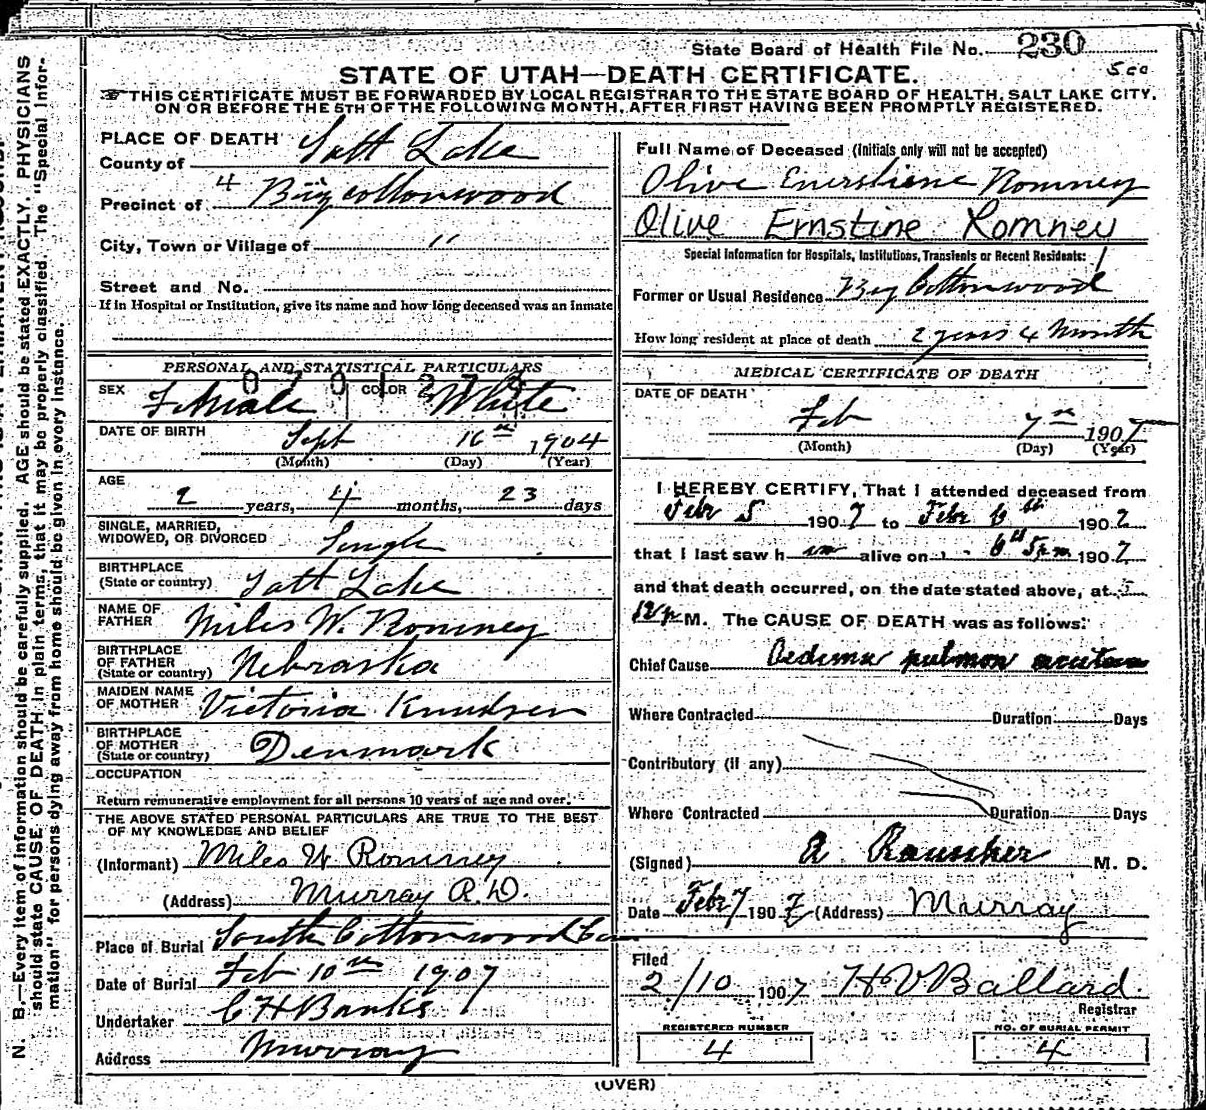 State Board of Health File No. 230
500
STATE OF UTAH—DEATH CERTIFICATE.
THIS CERTIFICATE MUST BE FORWARDED BY LOCAL REGISTRAR TO THE STATE BOARD OF HEALTH, SALT LAKE CITY,
ON OR BEFORE THE 5TH OF THE FOLLOWING MONTH, AFTER FIRST HAVING BEEN PROMPTLY REGISTERED.
N. B.—Every item of information should be carefully supplied. AGE should be stated EXACTLY. PHYSICIANS
should state CAUSE OF DEATH in plain terms, that it may be properly classified. The "Special Infor-
mation" for persons dying away from home should be given in every instance.
PLACE OF DEATH
County of Salt Lake
Precinct of 4 Big Cottonwood
City, Town or Village of "
Street and No.
If in Hospital or Institution, give its name and how long deceased was an inmate
PERSONAL AND STATISTICAL PARTICULARS
SEX Female COLOR White
DATE OF BIRTH Sept 16th 1904
(Month) (Day) (Year)
AGE
2 years, 4 months, 23 days
SINGLE, MARRIED,
WIDOWED, OR DIVORCED Single
BIRTHPLACE
(State or country) Salt Lake
NAME OF
FATHER Miles W. Romney
BIRTHPLACE
OF FATHER
(State or country) Nebraska
MAIDEN NAME
OF MOTHER Victoria Knudsen
BIRTHPLACE
OF MOTHER
(State or country) Denmark
OCCUPATION
Return remunerative employment for all persons 10 years of age and over.
THE ABOVE STATED PERSONAL PARTICULARS ARE TRUE TO THE BEST
OF MY KNOWLEDGE AND BELIEF
(Informant) Miles W Romney
(Address) Murray R.D.
Place of Burial South Cottonwood
Date of Burial Feb 10th 1907
Undertaker C H Banks
Address Murray
Full Name of Deceased (Initials only will not be accepted)
Olive Romney
Olive Ernstine Romney
Special Information for Hospitals, Institutions, Transients or Recent Residents:
Former or Usual Residence Big Cottonwood
How long resident at place of death 2 years 4 Month
MEDICAL CERTIFICATE OF DEATH
DATE OF DEATH
Feb 7th 1907
(Month) (Day) (Year)
I HEREBY CERTIFY, That I attended deceased from
Febr 5 1907 to Febr 6th 1907
that I last saw h alive on 6th 5pm 1907
and that death occurred, on the date stated above, at
M. The CAUSE OF DEATH was as follows:
Chief Cause Oedema pulmon
Where Contracted Duration Days
Contributory (if any)
Where Contracted Duration Days
(Signed) M. D.
Date Febr 7 1907 (Address) Murray
Filed
2/10 1907 H V Ballard
Registrar
REGISTERED NUMBER
4
NO. OF BURIAL PERMIT
4
(OVER)